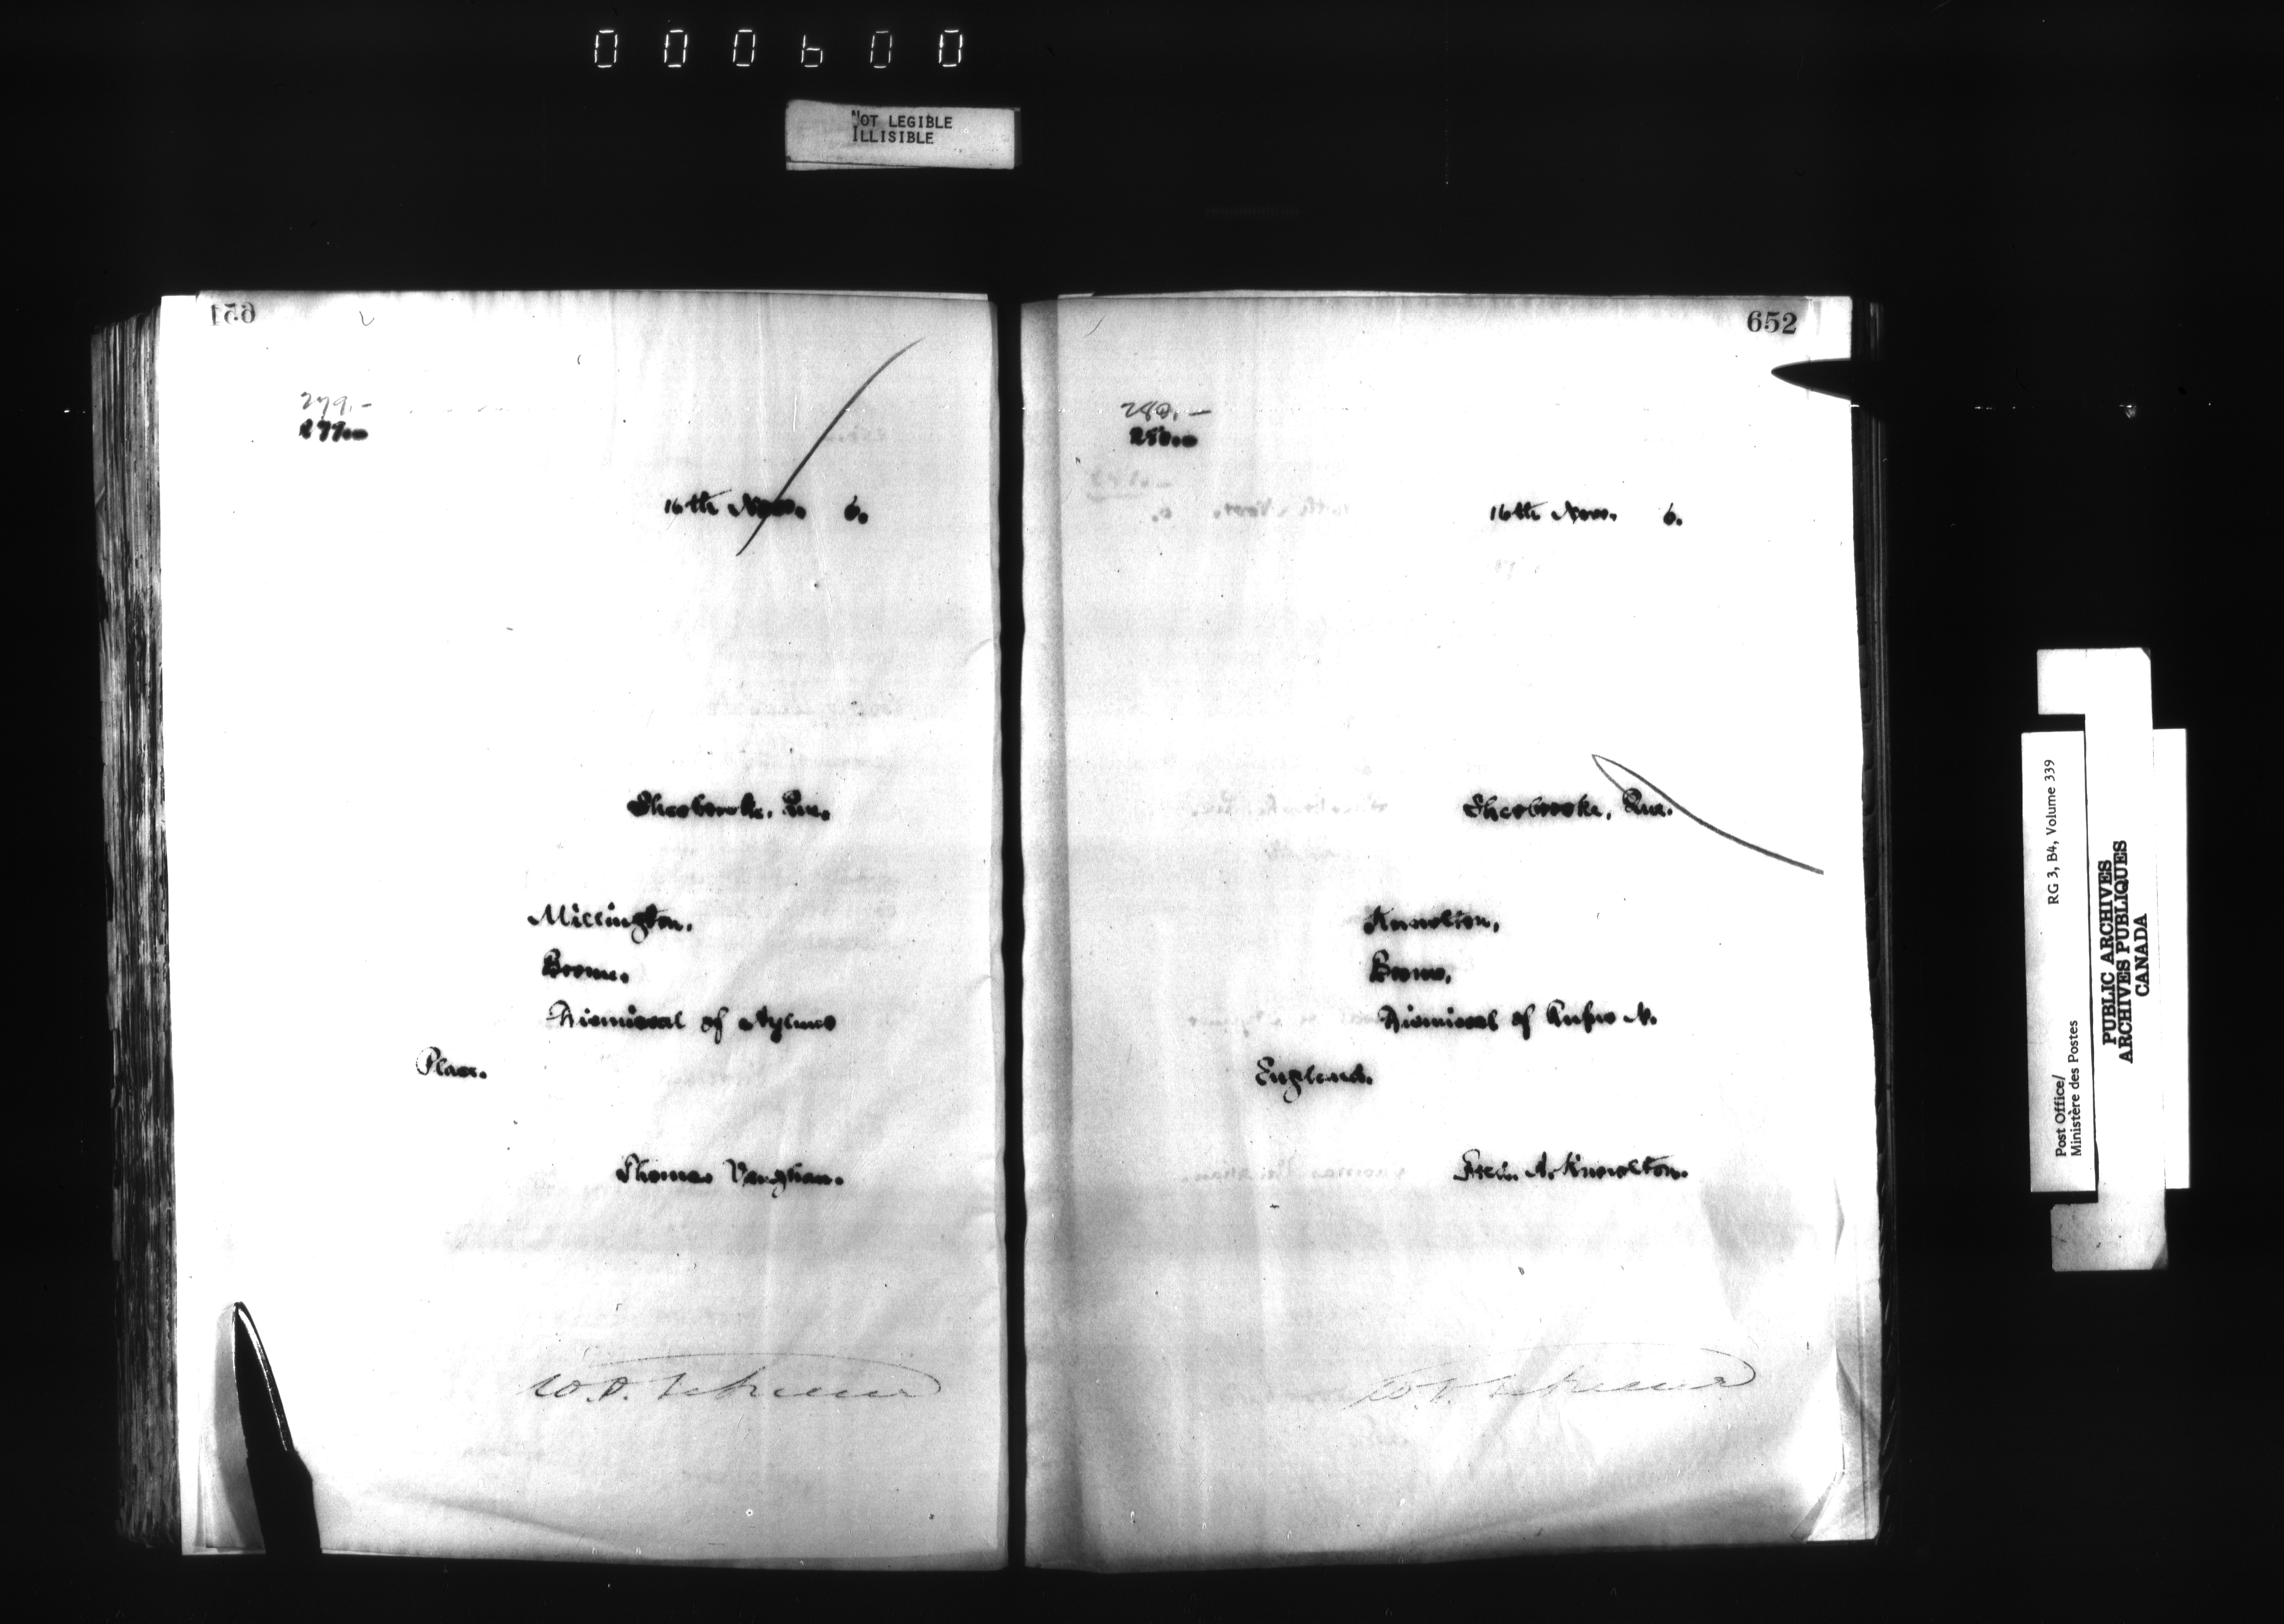 000600
NOT LEGIBLE
ILLISIBLE
651
279.-
16th Nov. 6.
Sherbrooke, Que.
Millington,
Brome.
Dismissal of
Place.
Thomas Vaughan.
652
280.-
16th Nov. 6.
Sherbrooke, Que.
Knowlton,
Brome,
Dismissal of Rufus N.
England.
Fred. A. Knowlton.
RG 3, B4, Volume 339
Post Office/
Ministère des Postes
PUBLIC ARCHIVES
ARCHIVES PUBLIQUES
CANADA